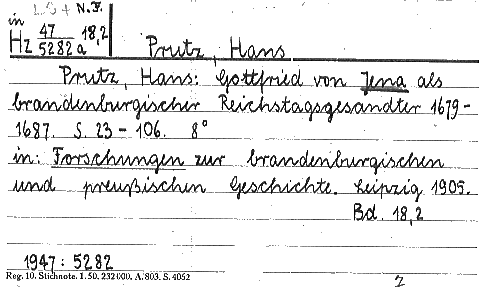 L S + N.F.
in
Hz 47/5282a 18,2 Prutz, Hans
Prutz, Hans: Gottfried von Jena als
brandenburgischer Reichstagsgesandter 1679-
1687. S. 23 - 106. 8°
in: Forschungen zur brandenburgischen
und preußischen Geschichte. Leipzig 1905.
Bd. 18,2
1947: 5282
Reg. 10. Stichnote. 1. 50. 232000. A. 803. S. 4052